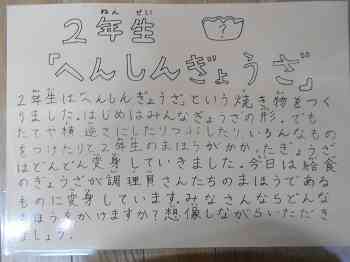 ２年生
ねん せい
?
『へんしんぎょうざ』
２年生は"へんしんぎょうざ"という焼き物をつく
りました。はじめはみんなぎょうざの形。でも
たてや横、逆さにしたりつぶしたりいろんなもの
をつけたりと２年生のまほうがかかったぎょうざ
はどんどん変身していきました。今日は給食
のぎょうざが調理員さんたちのまほうである
ものに変身しています。みなさんならどんな
まほうをかけますか？想像しながらいただき
ましょう。